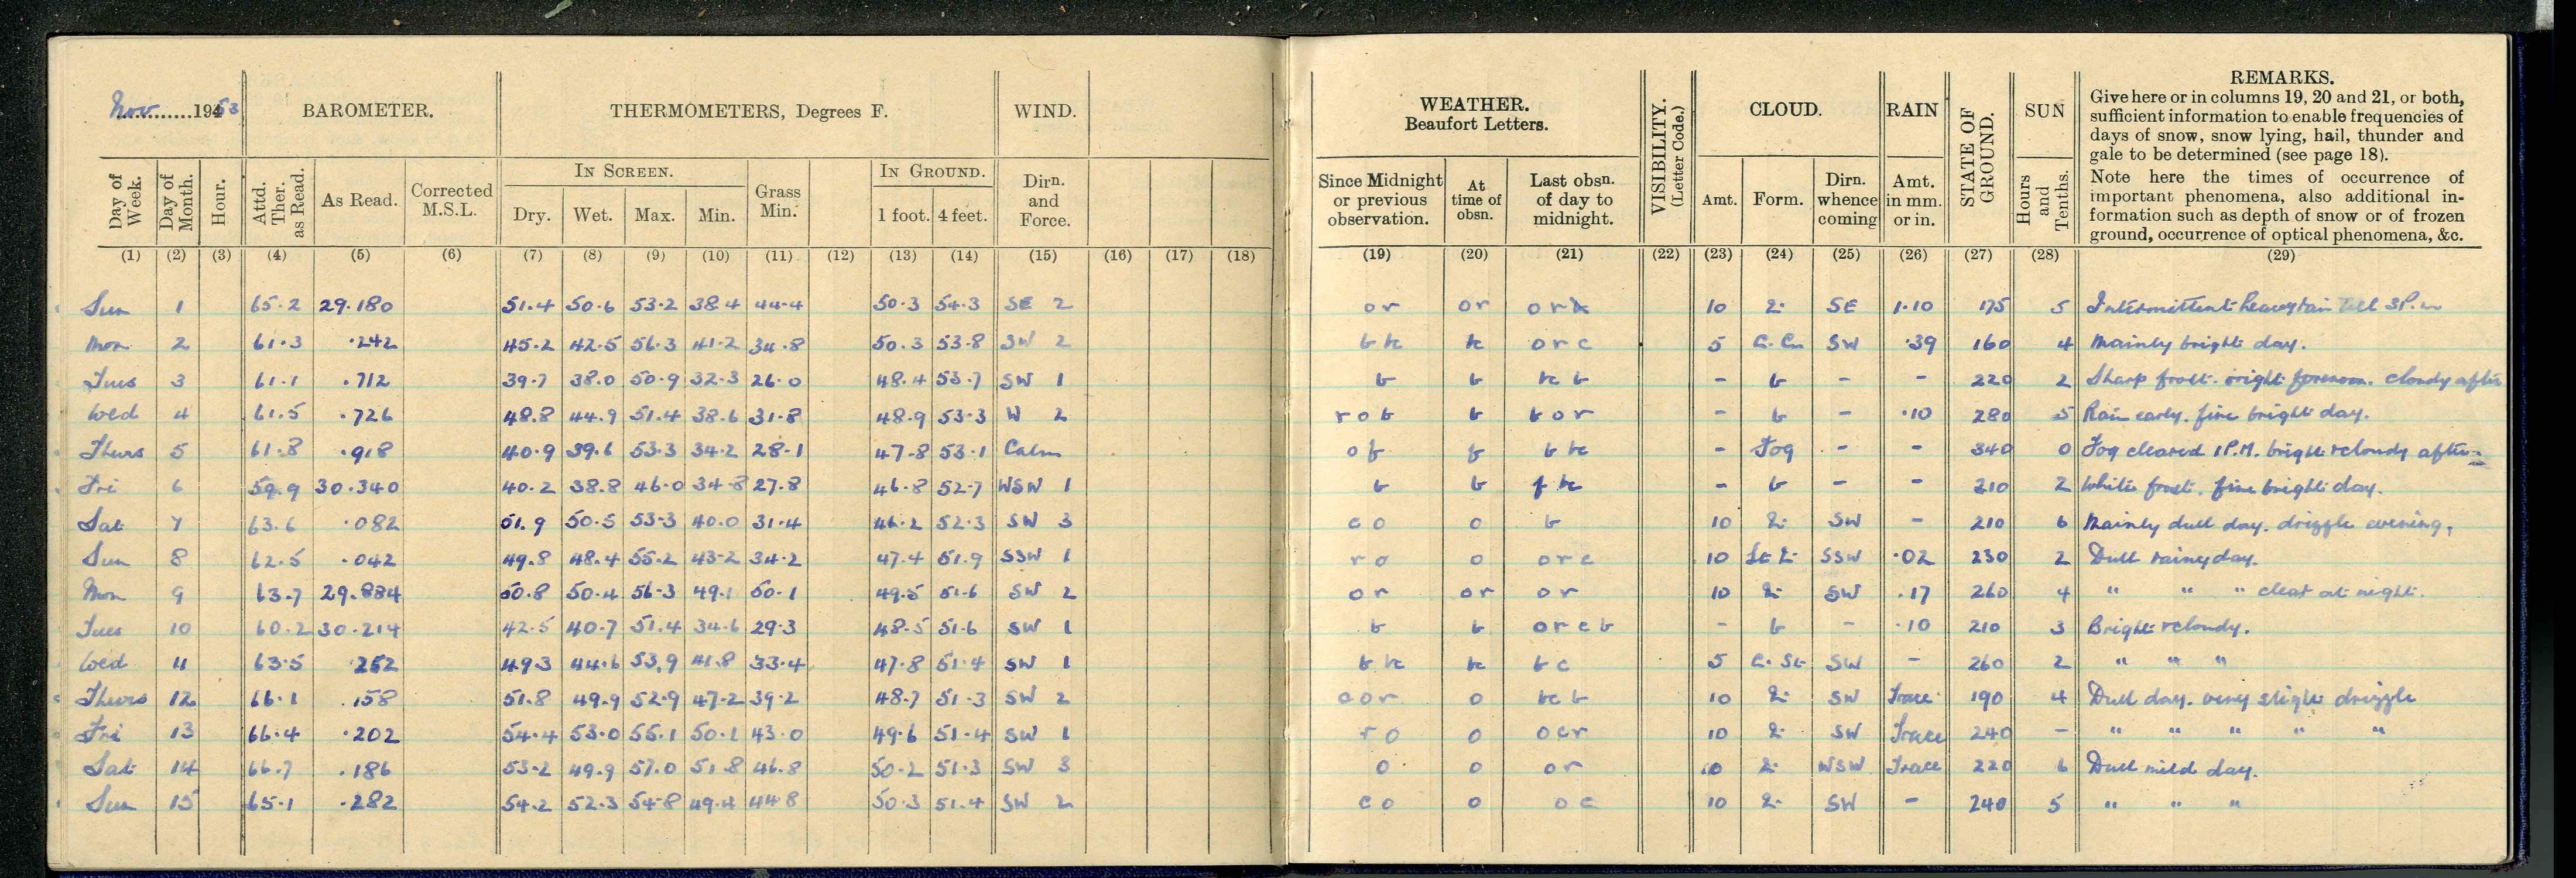 Nov 1953 BAROMETER. THERMOMETERS, Degrees F. WIND. WEATHER. Beaufort Letters. VISIBILITY. (Letter Code.) CLOUD. RAIN STATE OF GROUND. SUN REMARKS.
Give here or in columns 19, 20 and 21, or both,
sufficient information to enable frequencies of
days of snow, snow lying, hail, thunder and
gale to be determined (see page 18).
Note here the times of occurrence of
important phenomena, also additional in-
formation such as depth of snow or of frozen
ground, occurrence of optical phenomena, &c.
Day of Week. Day of Month. Hour. Attd. Ther. as Read. As Read. Corrected M.S.L. IN SCREEN. Dry. Wet. Max. Min. Grass Min. IN GROUND. 1 foot. 4 feet. Dirn. and Force. Since Midnight or previous observation. At time of obsn. Last obsn. of day to midnight. Amt. Form. Dirn. whence coming Amt. in mm. or in. Hours and Tenths.
(1) (2) (3) (4) (5) (6) (7) (8) (9) (10) (11) (12) (13) (14) (15) (16) (17) (18) (19) (20) (21) (22) (23) (24) (25) (26) (27) (28) (29)
Sun 1 65.2 29.180 51.4 50.6 53.2 38.4 44.4 50.3 54.3 SE 2 or or or 10 SE 1.10 175 5 Intermittent heavy rain till 3P.m
Mon 2 61.3 .242 45.2 42.5 56.3 41.2 34.8 50.3 53.8 SW 2 orc 5 C.Cu SW .39 160 4 Mainly bright day.
Tues 3 61.1 .712 39.7 38.0 50.9 32.3 26.0 48.4 53.7 SW 1 b b bc b - b - - 220 2 Sharp frost. bright forenoon. cloudy after
Wed 4 61.5 .726 48.8 44.9 51.4 38.6 31.8 48.9 53.3 W 2 rob b bor - b - .10 280 5 Rain early. fine bright day.
Thurs 5 61.8 .918 40.9 39.6 53.3 34.2 28.1 47.8 53.1 Calm of f b bc - Fog - - 340 0 Fog cleared 1P.M. bright & cloudy after-
Fri 6 59.9 30.340 40.2 38.8 46.0 34.8 27.8 46.8 52.7 WSW 1 b b f bc - b - - 210 2 White frost. fine bright day.
Sat 7 63.6 .082 51.9 50.5 53.3 40.0 31.4 46.2 52.3 SW 3 co o b 10 SW - 210 6 Mainly dull day. drizzle evening.
Sun 8 62.5 .042 49.8 48.4 55.2 43.2 34.2 47.4 51.9 SSW 1 ro o orc 10 SSW .02 230 2 Dull rainy day.
Mon 9 63.7 29.834 50.8 50.4 56.3 49.1 50.1 49.5 51.6 SW 2 or or or 10 SW .17 260 4 " " " clear at night.
Tues 10 60.2 30.214 42.5 40.7 51.4 34.6 29.3 48.5 51.6 SW 1 b b orcb - b - .10 210 3 Bright & cloudy.
Wed 11 63.5 .252 49.3 44.6 53.9 41.8 33.4 47.8 51.4 SW 1 b bc bc bc 5 C.St. SW - 260 2 " " "
Thurs 12 66.1 .158 51.8 49.9 52.9 47.2 39.2 48.7 51.3 SW 2 cor o bc b 10 SW Trace 190 4 Dull day. very slight drizzle
Fri 13 66.4 .202 54.4 53.0 55.1 50.1 43.0 49.6 51.4 SW 1 ro o ocr 10 SW Trace 240 - " " " " "
Sat 14 66.7 .186 53.2 49.9 57.0 51.8 46.8 50.2 51.3 SW 3 o o or 10 WSW Trace 220 6 Dull mild day.
Sun 15 65.1 .282 54.2 52.3 54.8 49.4 44.8 50.3 51.4 SW 2 co o oc 10 SW - 240 5 " " "